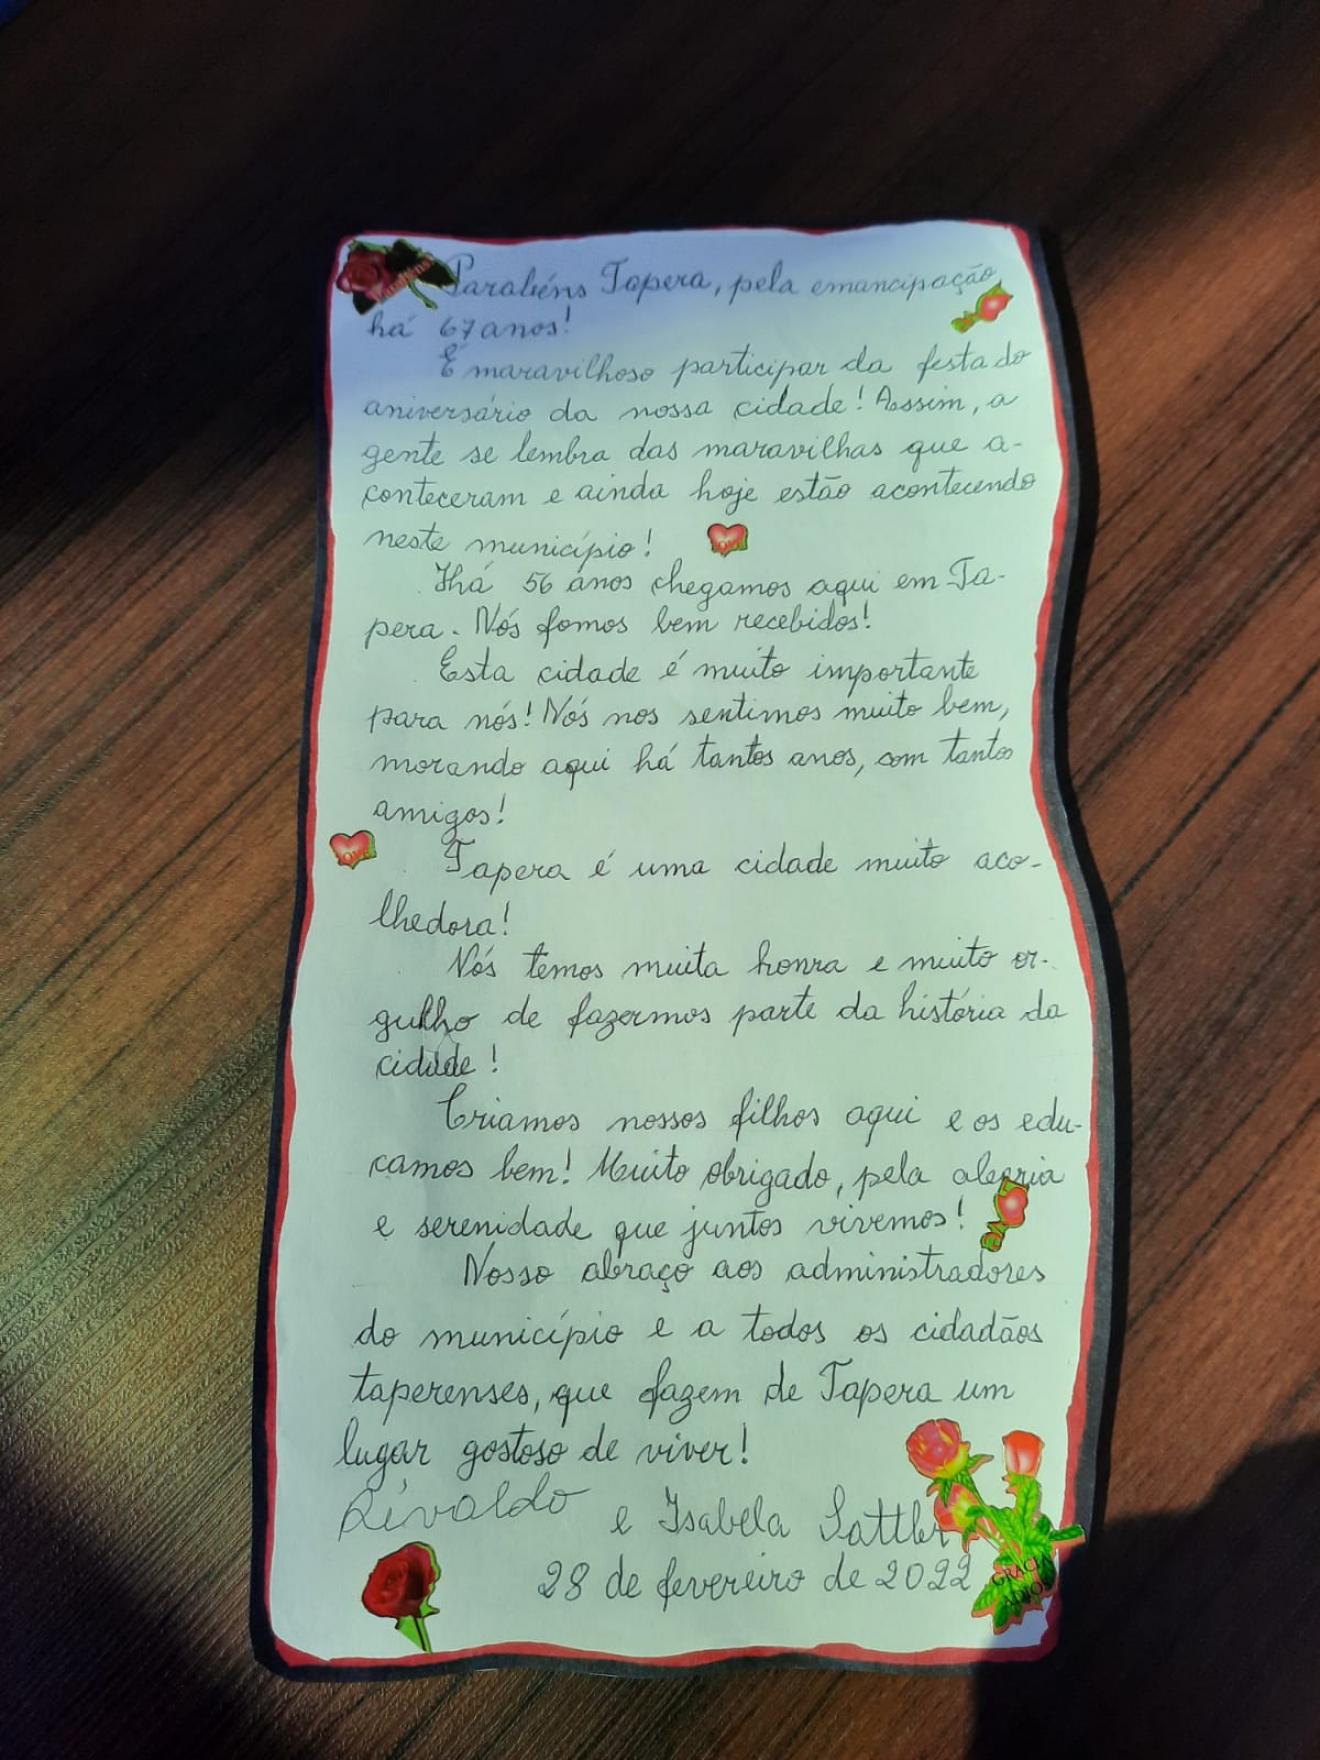 Parabéns Tapera, pela emancipação
há 67 anos!
É maravilhoso participar da festa do
aniversário da nossa cidade! Assim, a
gente se lembra das maravilhas que a-
conteceram e ainda hoje estão acontecendo
neste município!
Há 56 anos chegamos aqui em Ta-
pera. Nós fomos bem recebidos!
Esta cidade é muito importante
para nós! Nós nos sentimos muito bem,
morando aqui há tantos anos, com tantos
amigos!
Tapera é uma cidade muito aco-
lhedora!
Nós temos muita honra e muito or-
gulho de fazermos parte da história da
cidade!
Criamos nossos filhos aqui e os edu-
camos bem! Muito obrigado, pela alegria
e serenidade que juntos vivemos!
Nosso abraço aos administradores
do município e a todos os cidadãos
taperenses, que fazem de Tapera um
lugar gostoso de viver!
Rivaldo e Isabela Sattler
28 de fevereiro de 2022